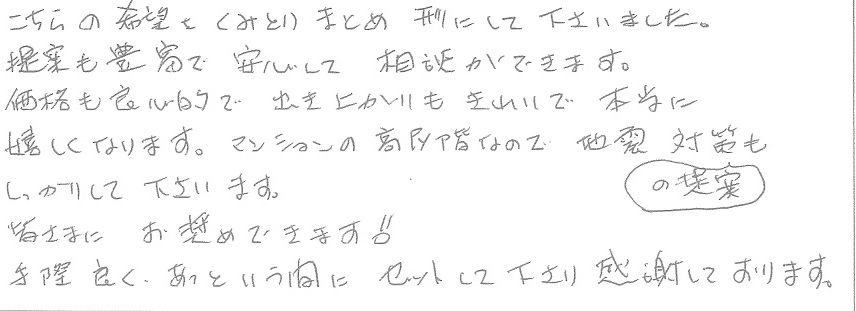 こちらの希望をくみとりまとめ形にして下さいました。
提案も豊富で安心して相談ができます。
価格も良心的で出き上がりもきれいで本当に
嬉しくなります。マンションの高階段なので地震対策も
しっかりして下さいます。
の提案
皆さまにお奨めできます!!
手際良く、あっという間にセットして下さり感謝しております。